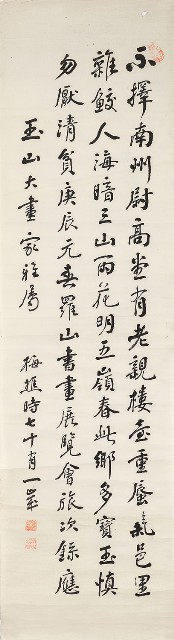 不擇南州尉高堂有老親樓台重蜃氣邑里
雜鮫人海暗三山雨花明五嶺春此鄉多寶玉慎
勿厭清貧庚辰元春羅山書畫展覽會旅次錄應
玉山大畫家雅屬
梅樵時七十有一歲